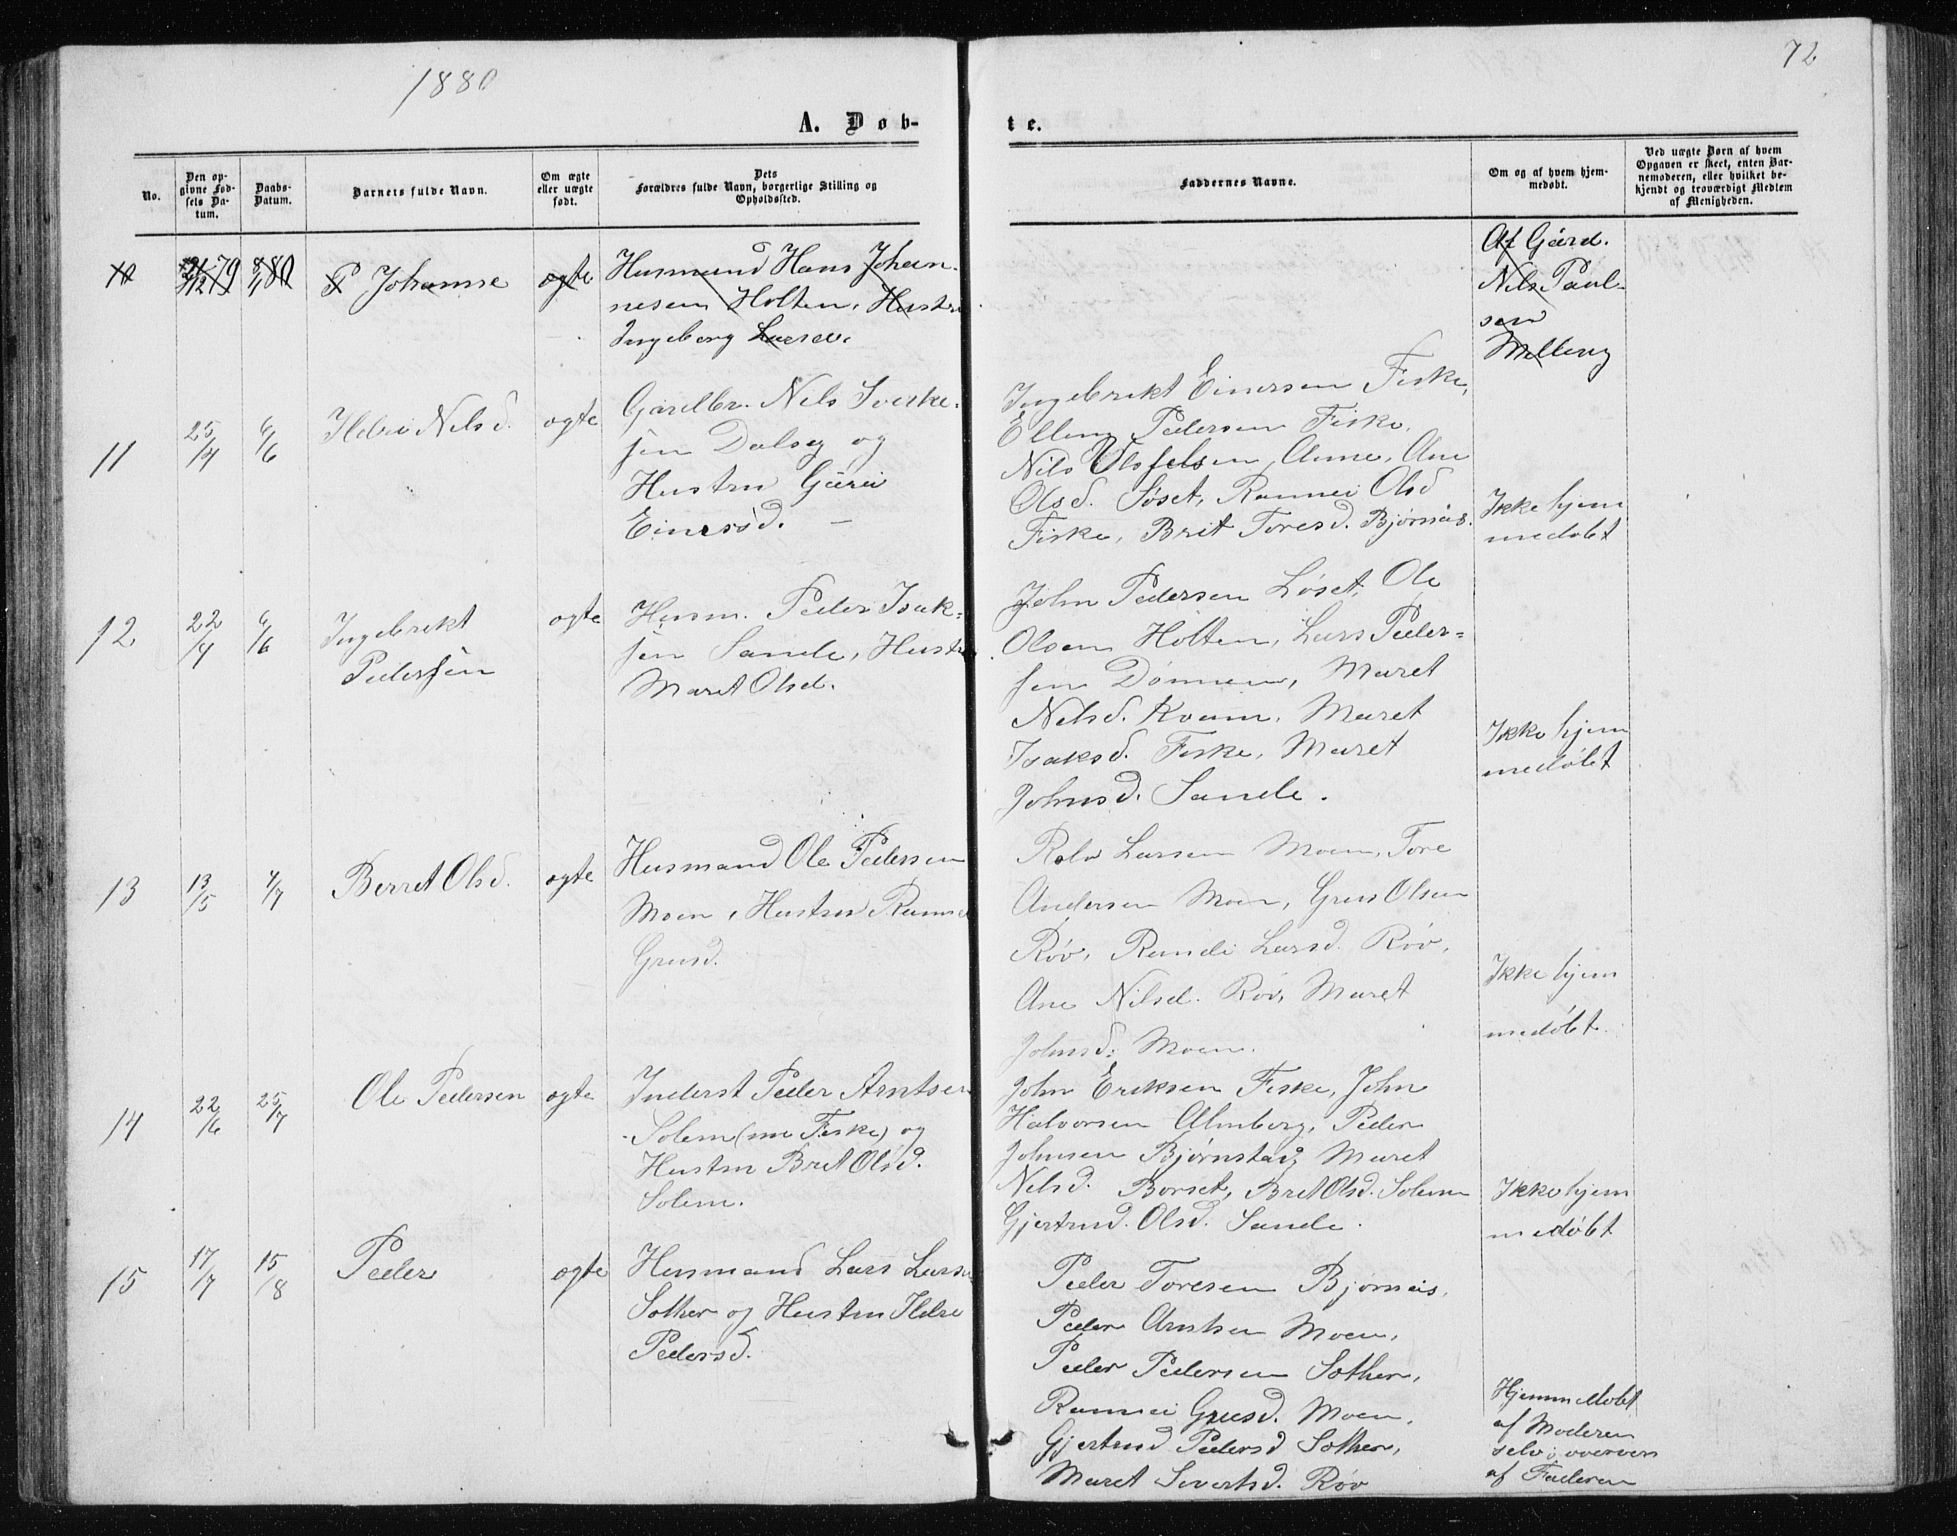 1880
72
A. Døb-
te.
No.
Den op-
givne Fød-
sels Da-
tum.
Daabs-
Datum.
Barnets fulde Navn.
Om ægte
eller uægte
født.
Dets
Forældres fulde Navn, borgerlige Stilling og
Opholdssted.
Faddernes Navne.
Om og af hvem hjem-
medøbt.
Ved uægte Børn af hvem
Opgaven er skeet, enten Bar-
nemoderen, eller hvilket be-
kjendt og troværdigt Medlem
af Menigheden.
Johanne
ogte
Husmand Hans Johan-
nesen Holten, Hustru
Ingeborg Larsd.
Af Gård.
Nils Paul-
sen
Melleng
11
25/4
6/6
Ildri Nilsd.
ogte
Gårdbr. Nils Sverke-
sen Dalsey og
Hustru Gurei
Einersd. –
Ingebrekt Einersen Fiske,
Elling Pedersen Fiske,
Nils Anne, Ane
Olsd. Søset, Rannei Olsd
Fiske, Brit Toresd. Bjørnås.
Ikke hjem
medøbt
12
22/4
6/6
Ingebrekt
Pedersen
ogte
Husm. Peder Isak-
sen Sande, Hustru
Maret Olsd.
John Pedersen Løset, Ole
Olsen Holten, Lars Peder-
sen Dønnem, Maret
Nelsd. Kvam, Maret
Isaksd. Fiske, Maret
Johnsd. Sande.
Ikke hjem
medøbt
13
13/5
4/7
Berret Olsd.
ogte
Husmand Ole Pedersen
Moen, Hustru Rannei
Grusd.
Rolv Larsen Moen, Tore
Andersen Moen, Grus Olsen
Røv, Randi Larsd. Røv,
Ane Nilsd. Røv, Maret
Johnsd. Moen.
Ikke hjem
medøbt
14
22/6
25/7
Ole Pedersen
ogte
Inderst Peder Arntsen
Solem (nu Fiske) og
Hustru Bret Olsd.
Solem.
John Eriksen Fiske, John
Halvorsen Almberg, Peder
Johnsen Bjørnstad, Maret
Nelsd. Borset, Bret Olsd. Solem
Gjertrud Olsd. Sande.
Ikke hjem
medøbt
15
17/7
15/8
Peder
ogte
Husmand Lars Larsen
Sother og Hustru Ildre
Pedersd.
Peder Toresen Bjørnås,
Peder Arntsen Moen,
Peder Pedersen Sother,
Rannei Grusd. Moen,
Gjertrud Pedersd Sother,
Maret Sivertsd. Røv
Hjemmedøbt
af Moderen
selv, overvær
af Faderen